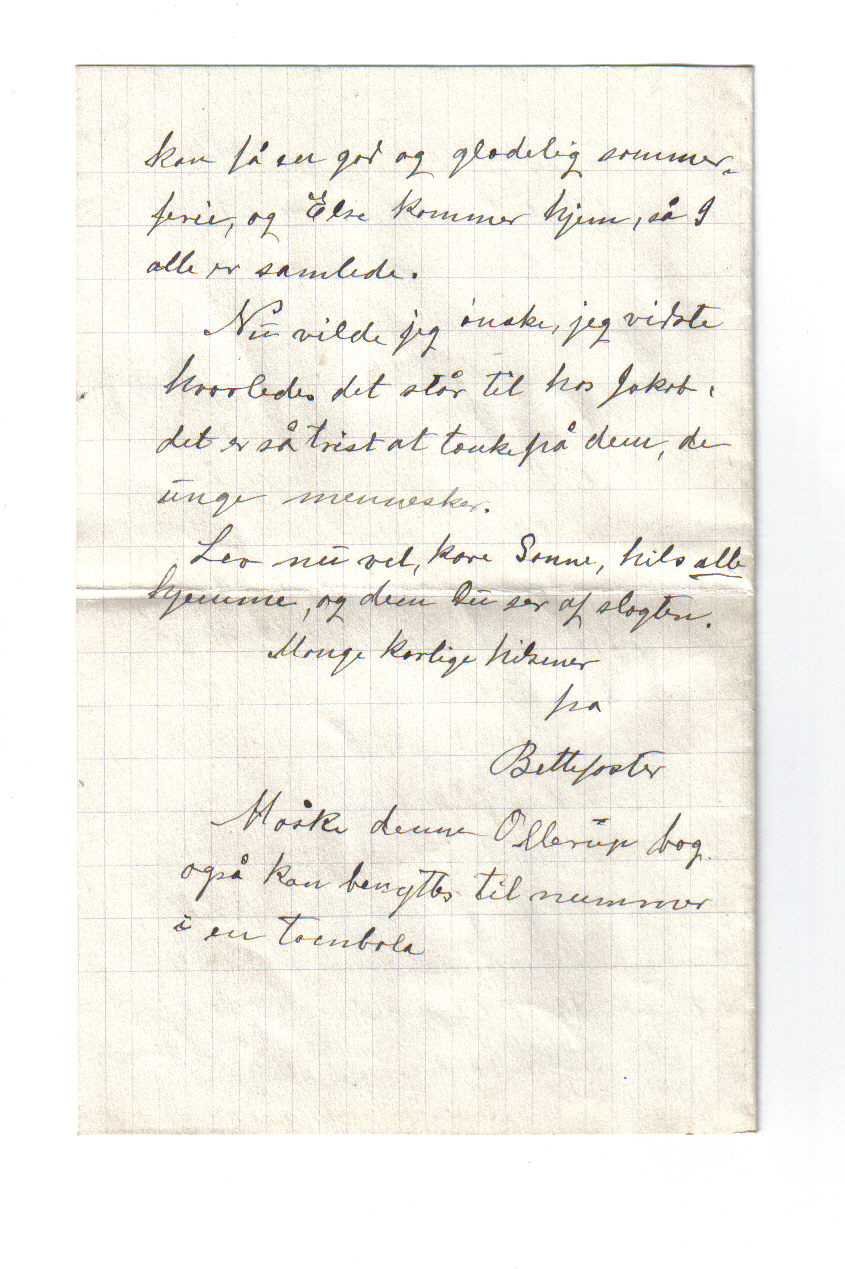 kan få en god og glædelig sommer-
ferie, og Else kommer hjem, så I
alle er samlede.
Nu vilde jeg ønske, jeg vidste
hvorledes det står til hos Jakob,
det er så trist at tænke på dem, de
unge mennesker.
Lev nu vel, kære Sonne, hils alle
hjemme, og dem Du ser af slægten.
Mange kærlige hilsner
fra
Bettefaster
Måske denne Ollerup bog
også kan benyttes til nummer
i en tombola